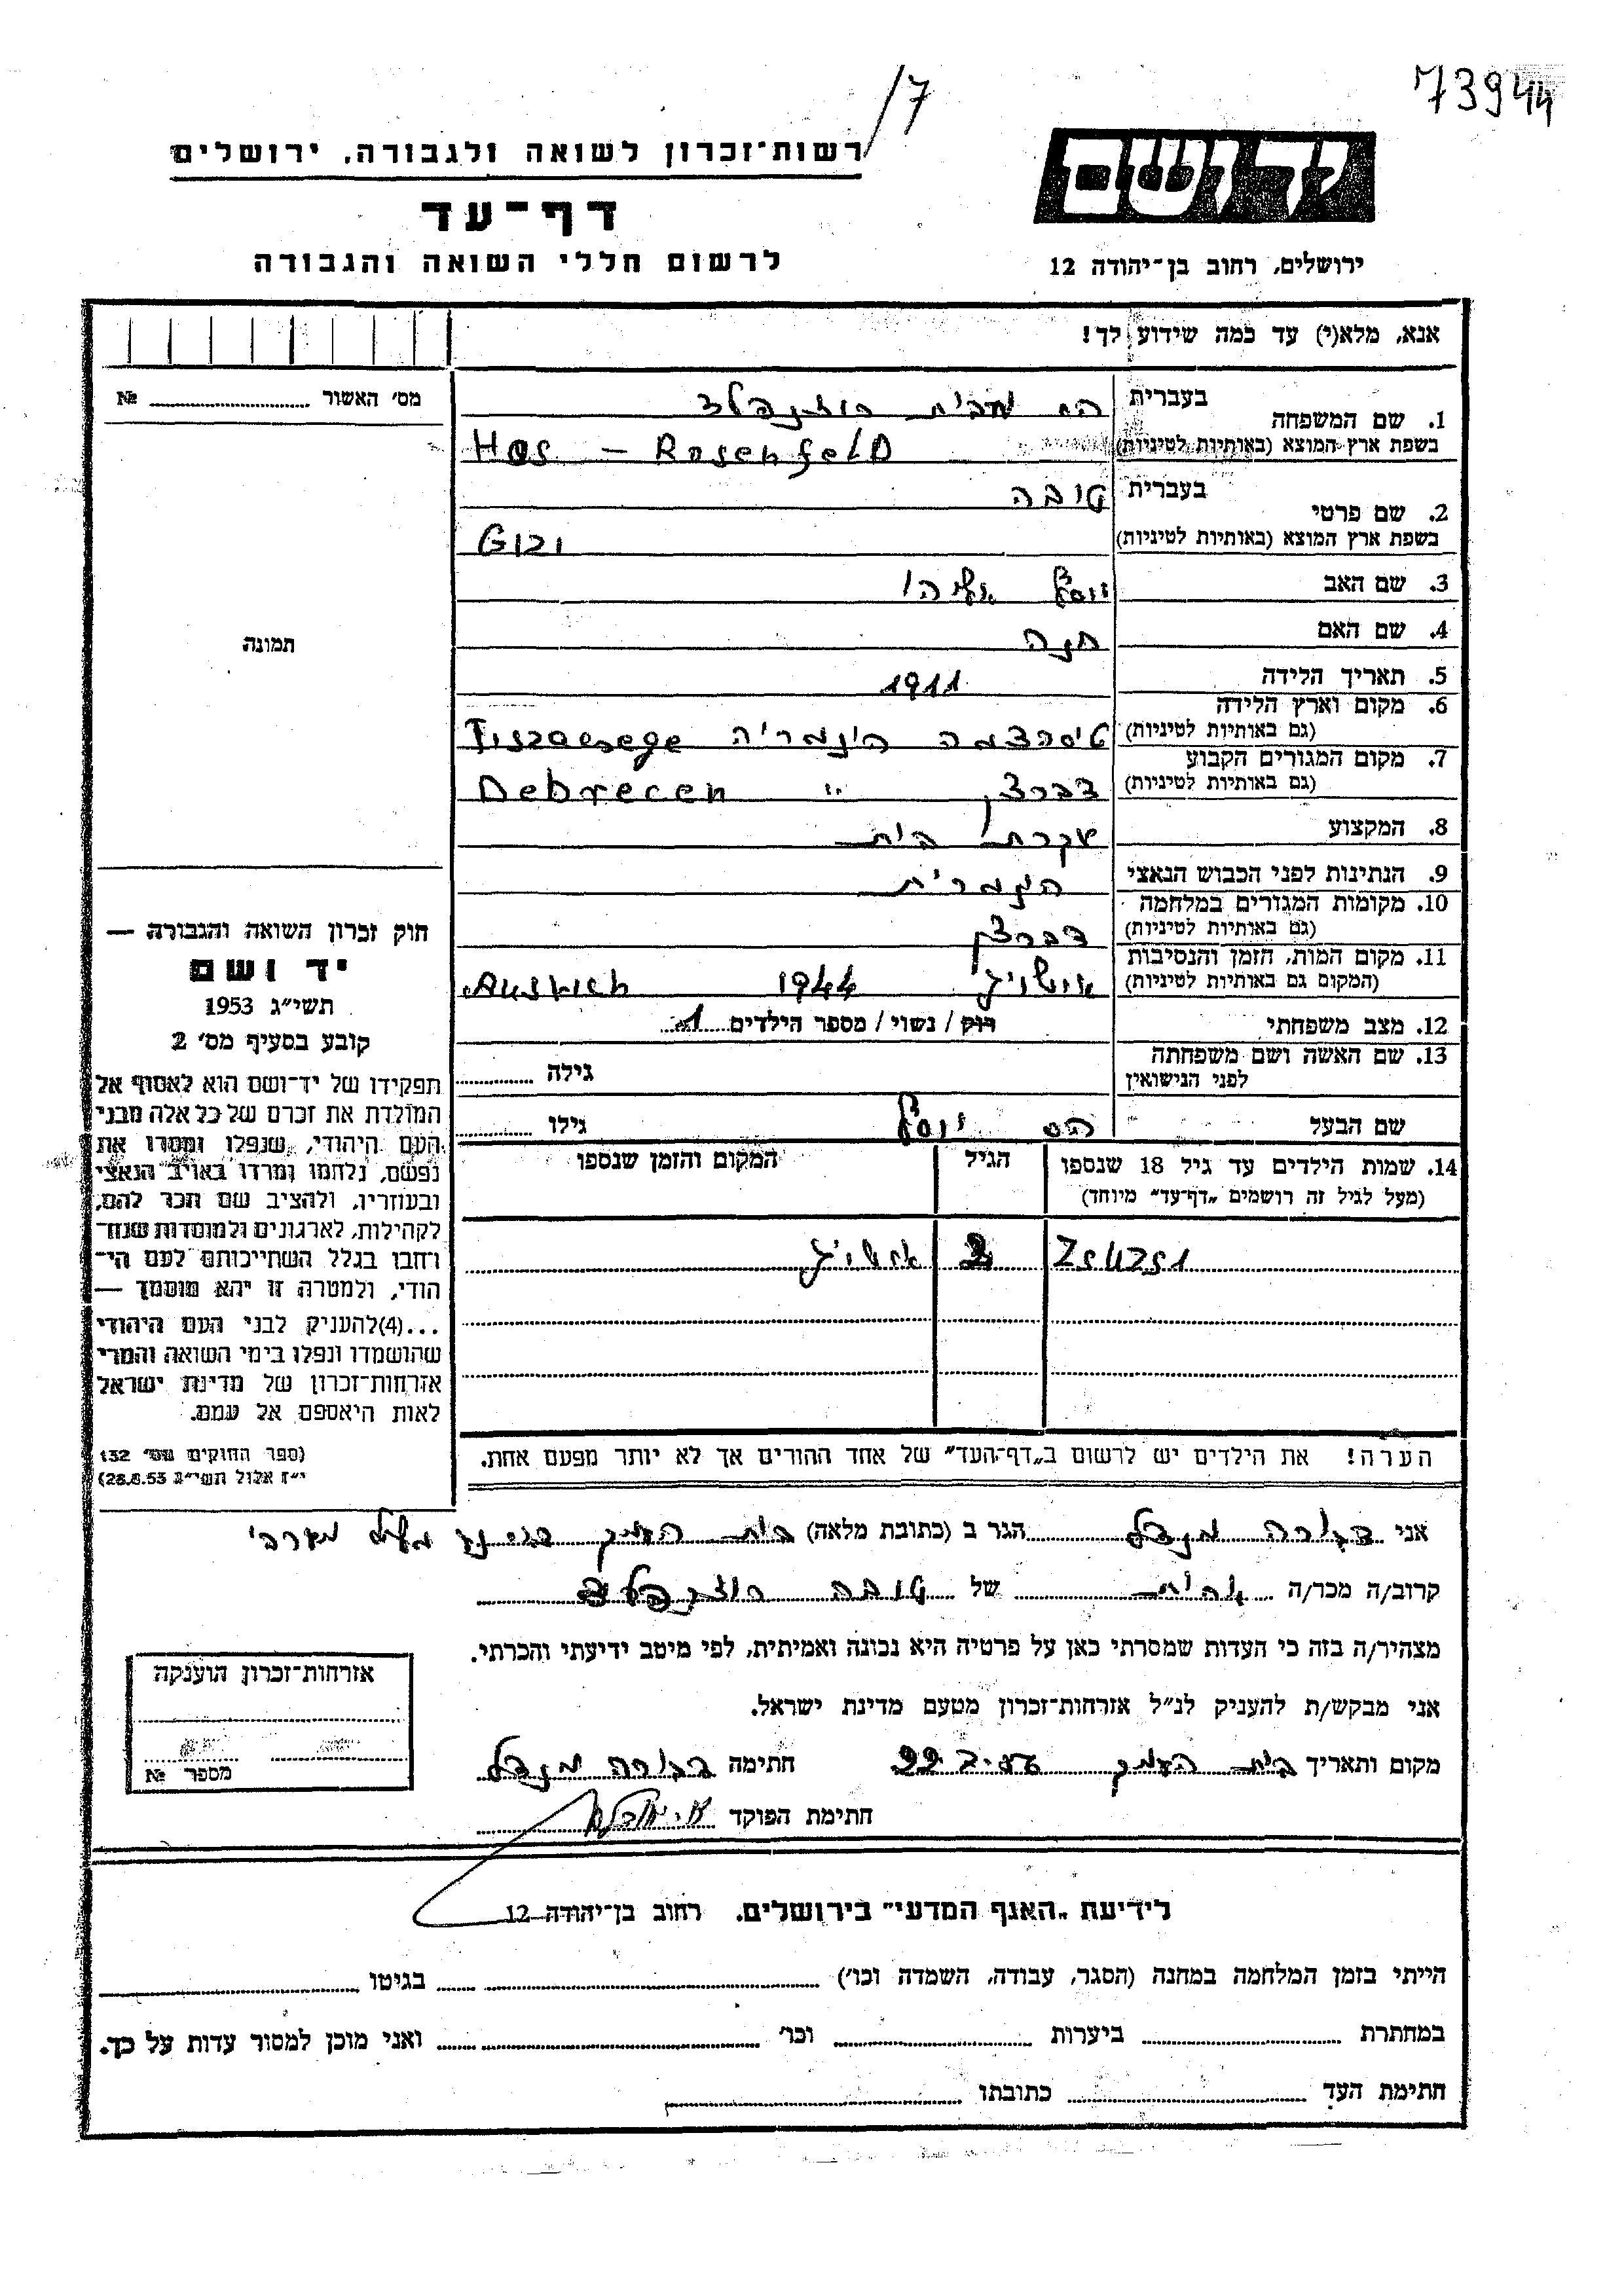 73944
/7
רשות־זכרון לשואה ולגבורה, ירושלים
דף־עד
לרשום חללי השואה והגבורה
יד ושם
ירושלים, רחוב בן־יהודה 12
אנא, מלא(י) עד כמה שידוע לך!
מס׳ האשור № 
1. שם המשפחה בעברית הס מבית רוזנפלד
בשפת ארץ המוצא (באותיות לטיניות) Hos - Rosenfeld
2. שם פרטי בעברית טובה
בשפת ארץ המוצא (באותיות לטיניות) Gizi
3. שם האב יוסף אליהו
4. שם האם חנה
5. תאריך הלידה 1911
6. מקום וארץ הלידה (גם באותיות לטיניות) הונגריה
7. מקום המגורים הקבוע (גם באותיות לטיניות) דברצן " Debrecen
8. המקצוע עקרת בית
9. הנתינות לפני הכבוש הנאצי הונגרית
10. מקומות המגורים במלחמה (גם באותיות לטיניות) דברצן
11. מקום המות, הזמן והנסיבות (המקום גם באותיות לטיניות) אושויץ 1944
12. מצב משפחתי רוק / נשוי / מספר הילדים 1
13. שם האשה ושם משפחתה לפני הנישואין גילה
שם הבעל הס יוסף גילו
14. שמות הילדים עד גיל 18 שנספו הגיל המקום והזמן שנספו
(מעל לגיל זה רושמים „דף־עד״ מיוחד)
Zsuzsi 2 אושויץ
הערה! את הילדים יש לרשום ב„דף־העד״ של אחד ההורים אך לא יותר מפעם אחת.
תמונה
חוק זכרון השואה והגבורה —
יד ושם
תשי״ג 1953
קובע בסעיף מס׳ 2
תפקידו של יד־ושם הוא לאסוף אל
המולדת את זכרם של כל אלה מבני
העם היהודי, שנפלו ומסרו את
נפשם, נלחמו ומרדו באויב הנאצי
ובעוזריו, ולהציב שם וזכר להם,
לקהילות, לארגונים ולמוסדות שנח־
רבו בגלל השתייכותם לעם הי־
הודי, ולמטרה זו יהא מוסמך —
...(4)להעניק לבני העם היהודי
שהושמדו ונפלו בימי השואה והמרי
אזרחות־זכרון של מדינת ישראל
לאות היאספם אל עמם.
(ספר החוקים מס׳ 132
י״ז אלול תשי״ג 28.8.53)
אני דבורה מנדל הגר ב (כתובת מלאה) בית העמק גליל מערבי
קרוב/ה מכר/ה אחות של טובה רוזנפלד
מצהיר/ה בזה כי העדות שמסרתי כאן על פרטיה היא נכונה ואמיתית, לפי מיטב ידיעתי והכרתי.
אני מבקש/ת להעניק לנ״ל אזרחות־זכרון מטעם מדינת ישראל.
מקום ותאריך בית העמק חתימה דבורה מנדל
חתימת הפוקד
אזרחות־זכרון הוענקה
מספר №
לידיעת „האגף המדעי״ בירושלים, רחוב בן־יהודה 12
הייתי בזמן המלחמה במחנה (הסגר, עבודה, השמדה וכו׳) בגיטו
במחתרת ביערות וכו׳ ואני מוכן למסור עדות על כך.
חתימת העד כתובתו